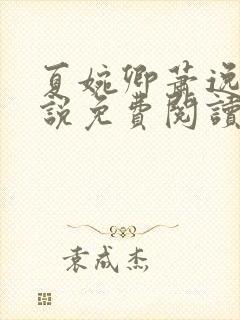 夏婉卿蕭逸
說免費閱讀
袁成杰